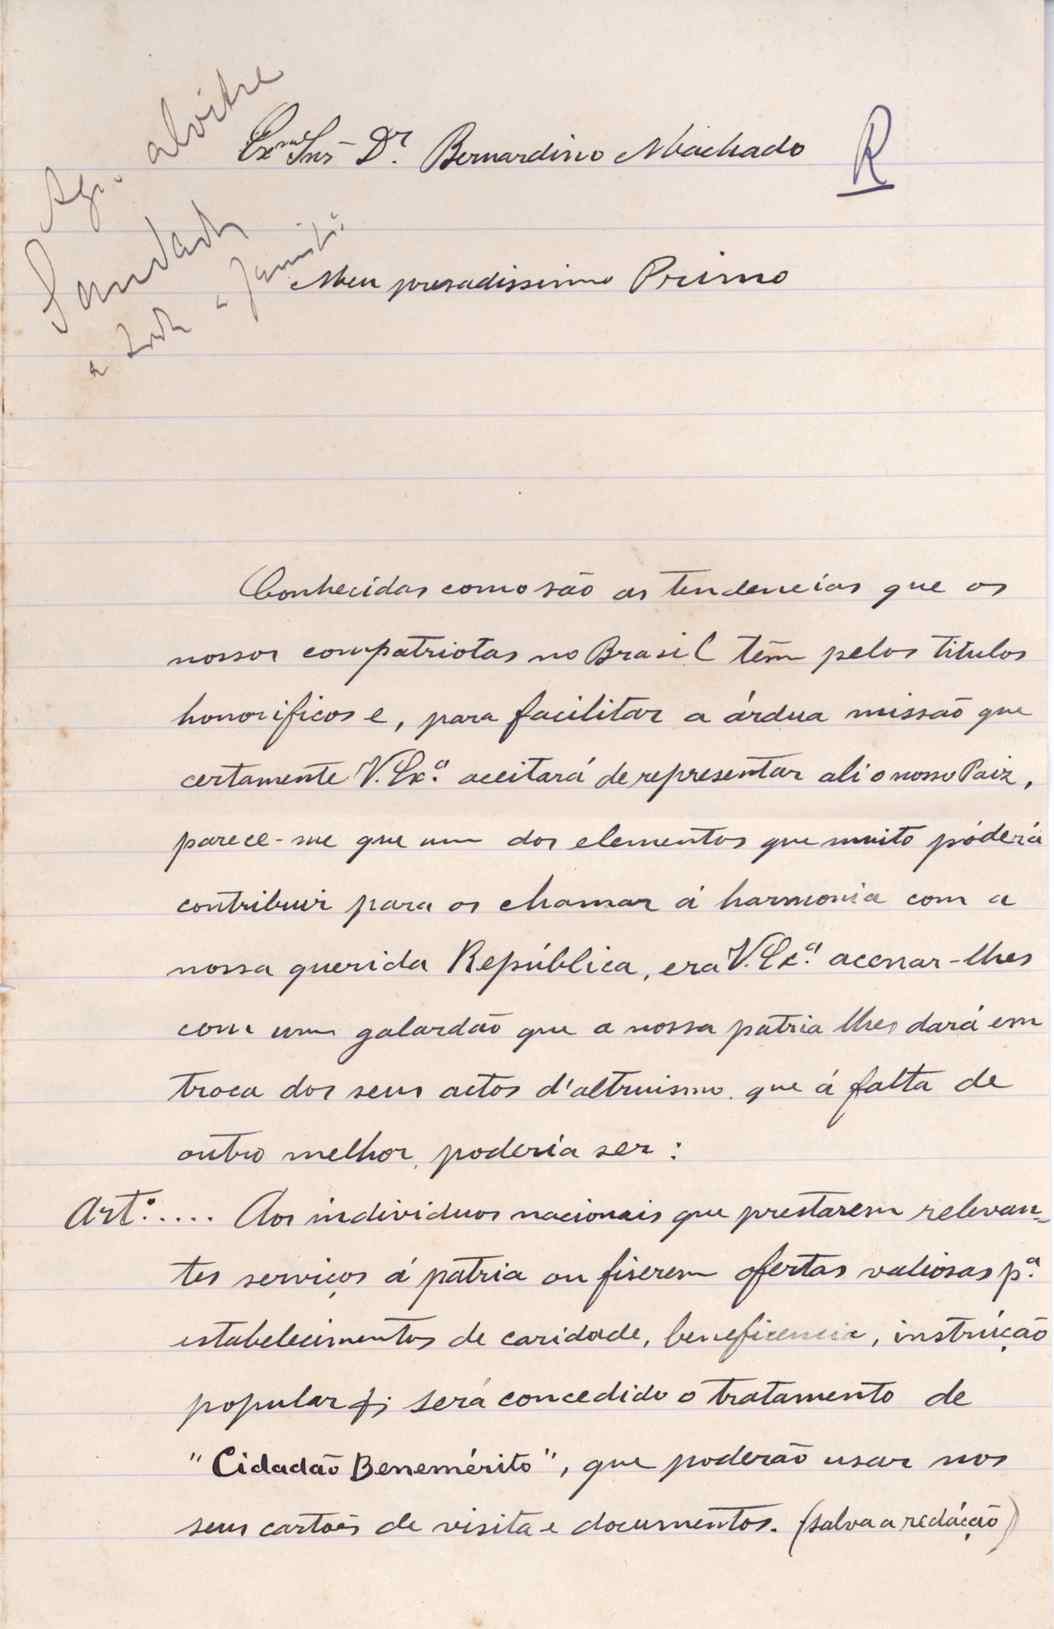 Agr. alvitre
Saudads
a toda a familia
Exmo Snr Dr. Bernardino Machado
R
Meu presadissimo Primo
Conhecidas como são as tendencias que os
nossos compatriotas no Brasil têm pelos titulos
honorificos e, para facilitar a árdua missão que
certamente V. Exª. aceitará de representar ali o nosso Paiz,
parece-me que um dos elementos que muito póderá
contribuir para os chamar á harmonia com a
nossa querida República, era V. Exª. acenar-lhes
com um galardão que a nossa patria lhes dará em
troca dos seus actos d'altruismo que á falta de
outro melhor, poderia ser:
Artº..... Aos individuos nacionais que prestarem relevan=
tes serviços á pátria ou fiserem ofertas valiosas pª.
estabelecimentos de caridade, beneficencia, instrução
popular &; será concedido o tratamento de
"Cidadão Benemérito", que poderão usar nos
seus cartões de visita e documentos. (salva a redáção)